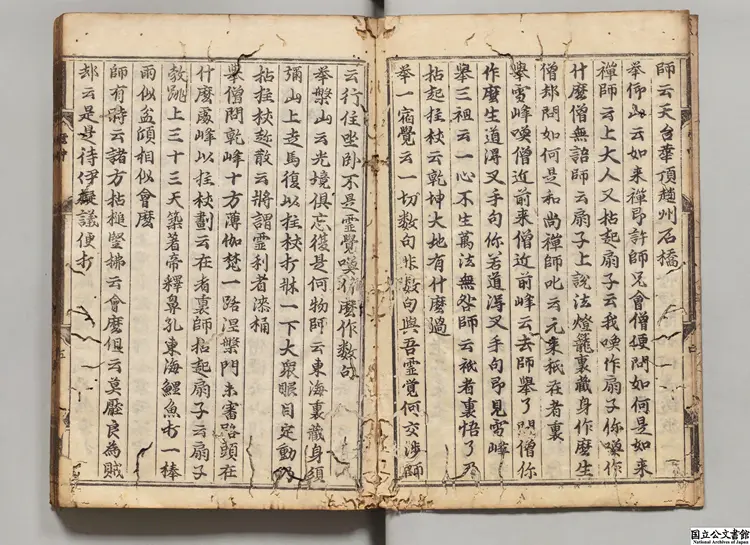 師云天台華頂趙州石橋
舉仰山云如來禪即許師兄會僧便問如何是如來
禪師云上大人又拈起扇子云我喚作扇子你喚作
什麼僧無語師云扇子上說法燈籠裏藏身作麼生
僧却問如何是和尚禪師叱云元來秖在者裏
舉雪峰喚僧近前來僧近前峰云去師舉了問僧你
作麼生道得叉手句你若道得叉手句即見雪峰
舉三祖云一心不生萬法無咎師云秖者裏悟了乃
拈起拄杖云乾坤大地有什麼過
舉一宿覺云一切數句非數句與吾靈覺何交涉師
云行住坐卧不是靈覺喚什麼作數句
舉槃山云光境俱忘復是何物師云東海裏藏身須
彌山上走馬復以拄杖打牀一下大眾眼目定動乃
拈拄杖趂散云將謂靈利者漆桶
舉僧問乾峰十方薄伽梵一路涅槃門未審路頭在
什麼處峰以拄杖劃云在者裏師拈起扇子云扇子
跳上三十三天築著帝釋鼻孔東海鯉魚打一棒
雨似盆傾相似會麼
師有時云諸方拈槌竪拂云會麼但云莫壓良為賊
却云是是待伊擬議便打
国立公文書館
National Archives of Japan